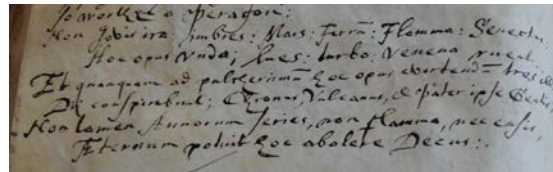 So worthye a Peragon:
Non Jovis ira imbres: Mars: Ferrū: Flamma: Senectus
Hoc opus vnda; lues: turbo: venena ruent.
Et quanquam ad pulcherrimū hoc opus evertendū tres
Dij conspirabunt; Chronus, Vulcanus, & Pater ipse Gentis
Non tamen Annorum series, non flamma, nec ensis,
Æternum potuit hoc abolere Decus:.